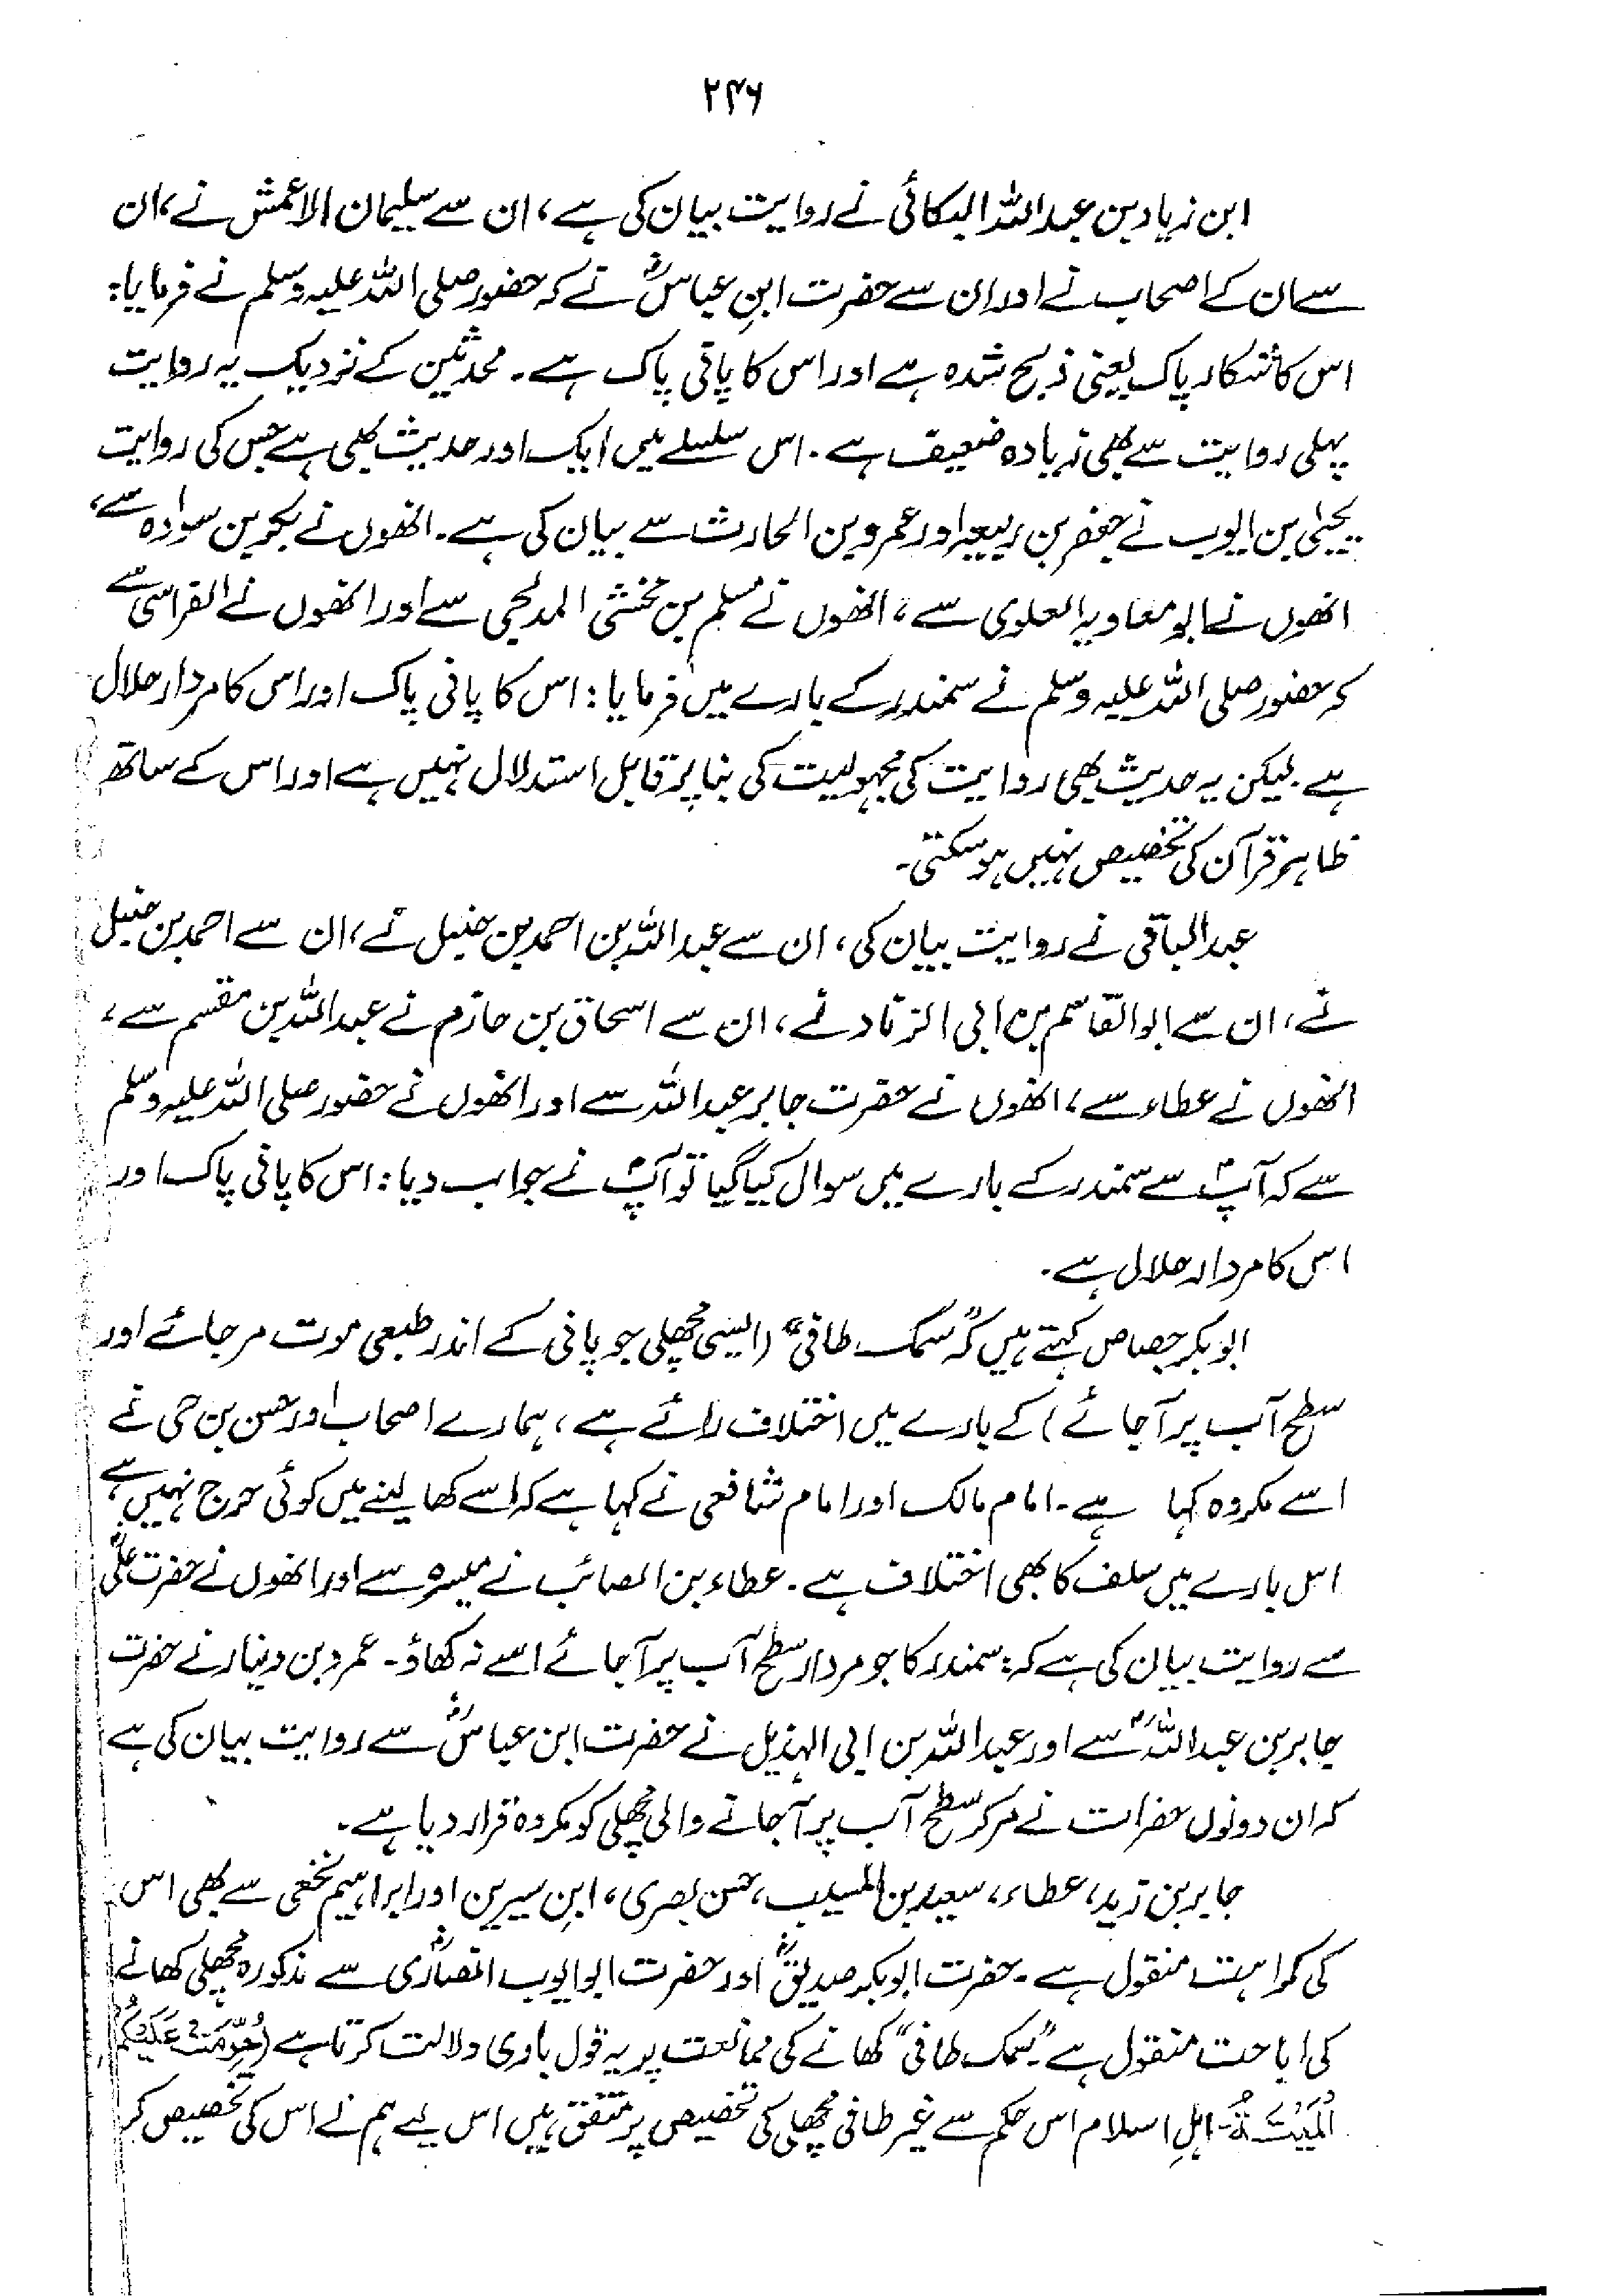 ۲۴۶
ابن زیاد بن عبداللہ البکائی نے روایت بیان کی ہے، ان سے سلیمان الاعمش نے، ان
سے ان کے اصحاب نے اور ان سے حضرت ابنِ عباسؓ نے کہ حضور صلی اللہ علیہ وسلم نے فرمایا:
اس کا شکار پاک یعنی ذبح شدہ ہے اور اس کا پانی پاک ہے۔ محدثین کے نزدیک یہ روایت
پہلی روایت سے بھی زیادہ ضعیف ہے۔ اس سلسلے میں ایک اور حدیث بھی ہے جس کی روایت
یحییٰ بن ایوب نے جعفر بن ربیعہ اور عمرو بن الحارث سے بیان کی ہے۔ انھوں نے بکر بن سوادہ سے،
انھوں نے ابو معاویہ العلوی سے، انھوں نے مسلم بن مخشی المدلجی سے اور انھوں نے الفراسی سے
کہ حضور صلی اللہ علیہ وسلم نے سمندر کے بارے میں فرمایا: اس کا پانی پاک اور اس کا مردار حلال
ہے۔ لیکن یہ حدیث بھی روایت کی مجہولیت کی بنا پر قابل استدلال نہیں ہے اور اس کے ساتھ
ظاہر قرآن کی تخصیص نہیں ہو سکتی۔
عبدالباقی نے روایت بیان کی، ان سے عبداللہ بن احمد بن حنبل نے، ان سے احمد بن حنبل
نے، ان سے ابوالقاسم بن ابی الزناد نے، ان سے اسحاق بن حازم نے عبداللہ بن مقسم سے،
انھوں نے عطاء سے، انھوں نے حضرت جابر عبداللہ سے اور انھوں نے حضور صلی اللہ علیہ وسلم
سے کہ آپؐ سے سمندر کے بارے میں سوال کیا گیا تو آپؐ نے جواب دیا: اس کا پانی پاک اور
اس کا مردار حلال ہے۔
ابوبکر جصاص کہتے ہیں کہ "سمک طافی" (ایسی مچھلی جو پانی کے اندر طبعی موت مر جائے اور
سطح آب پر آ جائے) کے بارے میں اختلاف رائے ہے، ہمارے اصحاب اور حسن بن حی نے
اسے مکروہ کہا ہے۔ امام مالک اور امام شافعی نے کہا ہے کہ اسے کھا لینے میں کوئی حرج نہیں ہے
اس بارے میں سلف کا بھی اختلاف ہے۔ عطاء بن السائب نے میسرہ سے اور انھوں نے حضرت علیؓ
سے روایت بیان کی ہے کہ: سمندر کا جو مردار سطح آب پر آ جائے اسے نہ کھاؤ۔ عمرو بن دینار نے حضرت
جابر بن عبداللہؓ سے اور عبداللہ بن ابی الہذیل نے حضرت ابن عباسؓ سے روایت بیان کی ہے
کہ ان دونوں حضرات نے مر کر سطح آب پر آ جانے والی مچھلی کو مکروہ قرار دیا ہے۔
جابر بن زید، عطاء، سعید بن المسیب، حسن بصری، ابنِ سیرین اور ابراہیم نخعی سے بھی اس
کی کراہت منقول ہے۔ حضرت ابوبکر صدیقؓ اور حضرت ابو ایوب انصاریؓ سے مذکورہ مچھلی کھانے
کی اباحت منقول ہے "سمک طافی" کھانے کی ممانعت پر یہ قول باری دلالت کرتا ہے (حُرِّمَتْ عَلَیْکُمُ
الْمَیْتَةُ۔ اہلِ اسلام اس حکم سے غیر طافی مچھلی کی تخصیص پر متفق ہیں اس لیے ہم نے اس کی تخصیص کر